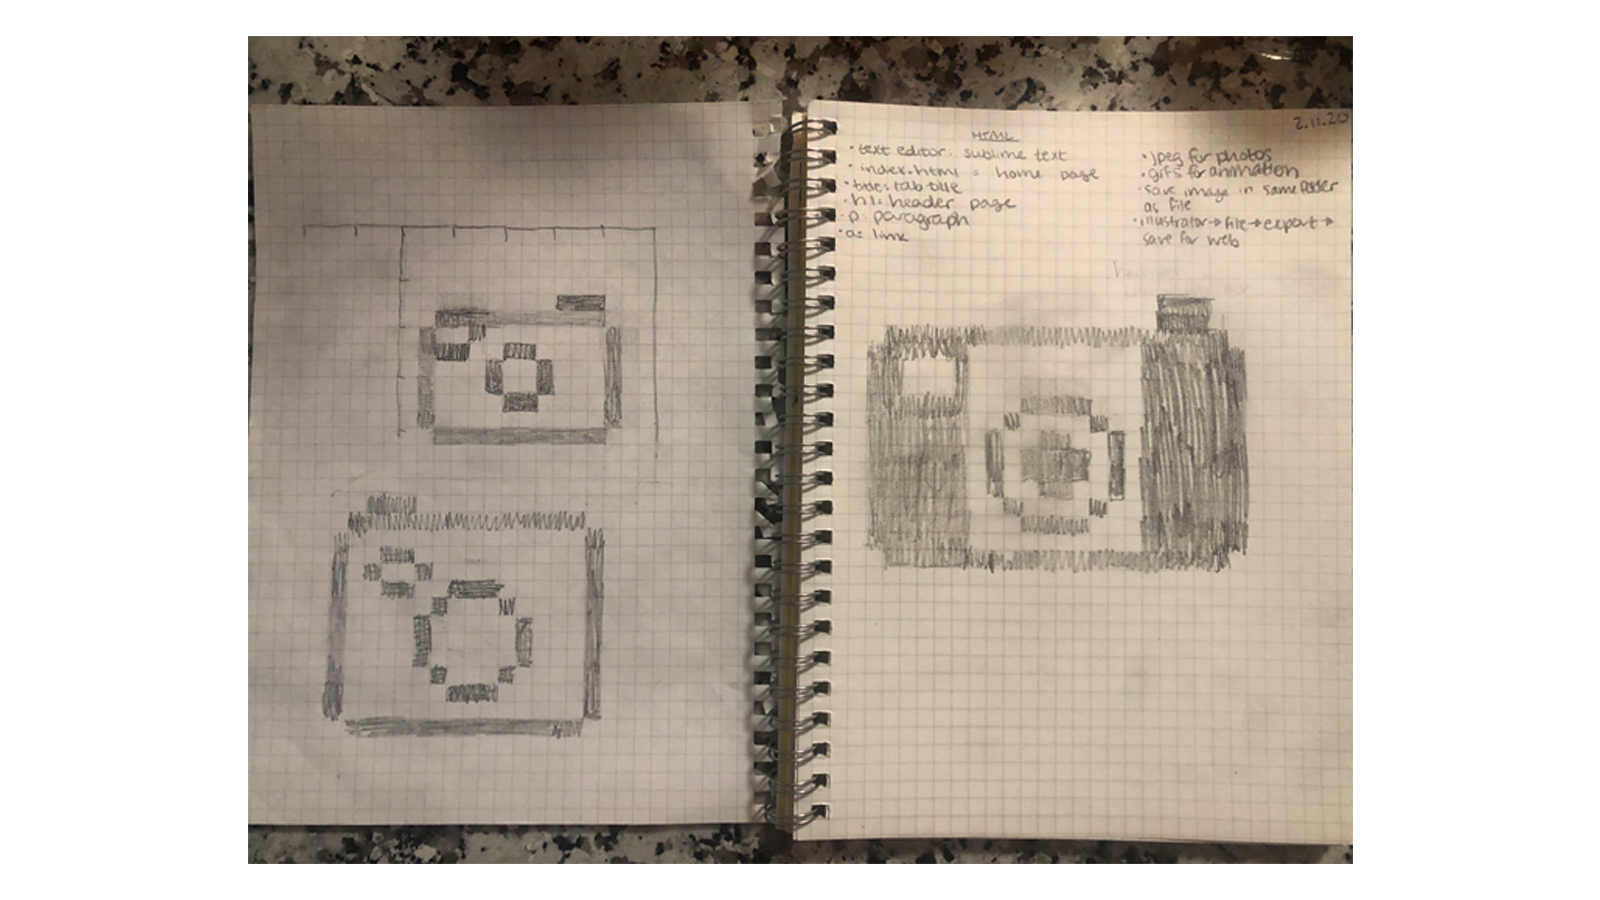 2.11.20
HTML
• text editor: sublime text
• index.html = home page
• title: tab title
• h1: header page
• p: paragraph
• a: link
• jpeg for photos
• gifs for animation
• save image in same folder
as file
• illustrator → file → export →
save for web